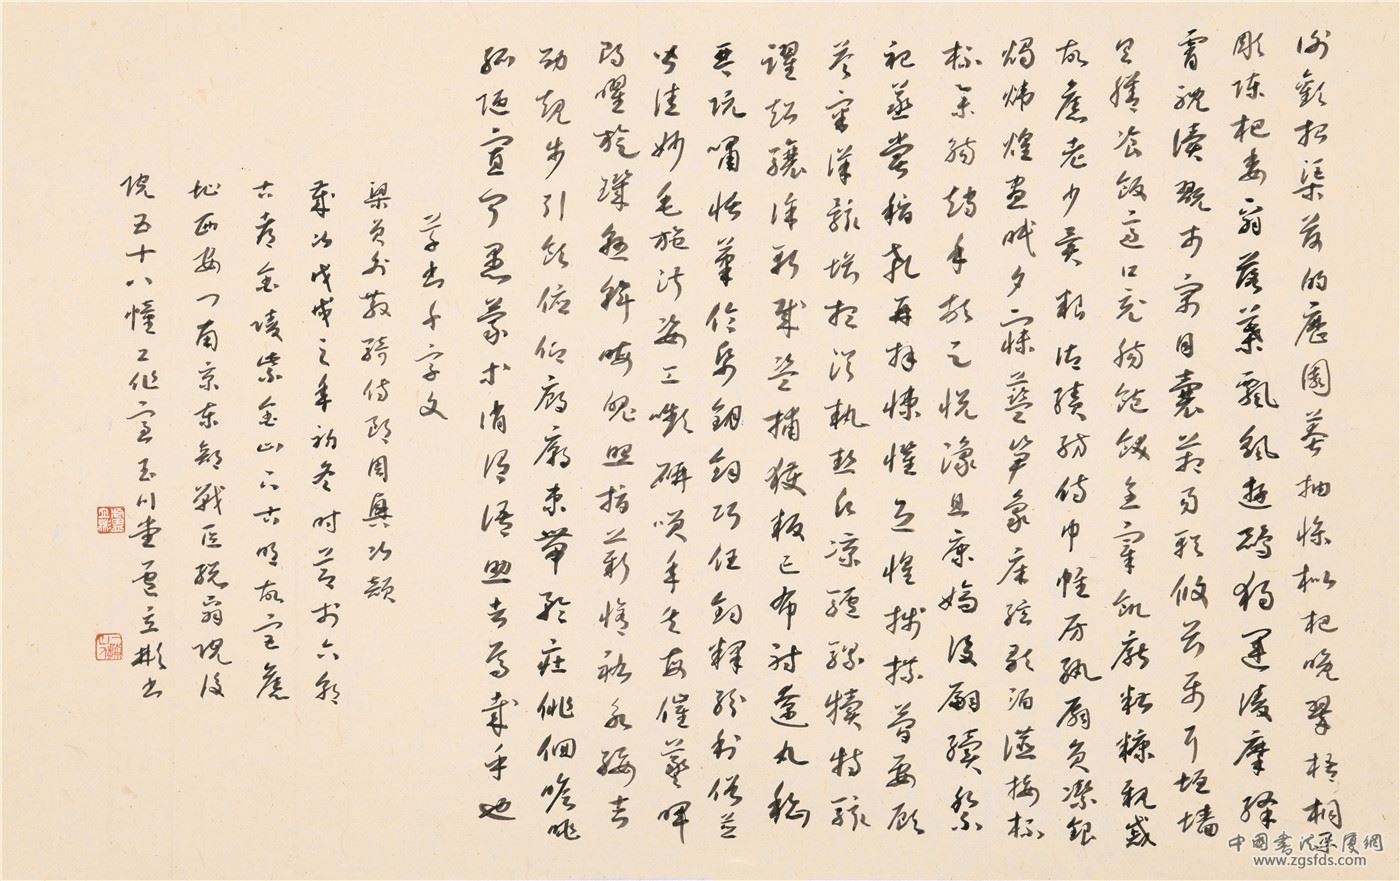 謝歡招渠荷的歷園莽抽條枇杷晚翠梧桐早
彫陳根委翳落葉飄颻遊鵾獨運凌摩絳
霄耽讀翫市寓目囊箱易輶攸畏屬耳垣墻
具膳飡飯適口充腸飽飫烹宰飢厭糟糠親戚
故舊老少異粮妾御績紡侍巾帷房紈扇員潔銀
燭煒煌晝眠夕寐藍笋象床弦歌酒讌接杯
杯舉觴矯手頓足悅豫且康嫡後嗣續祭
祀蒸嘗稽顙再拜悚懼恐惶牋牒簡要顧
答審詳骸垢想浴執熱願涼驢騾犢特駭
躍超驤誅斬賊盜捕獲叛亡布射遼丸嵇
琴阮嘯恬筆倫紙鈞巧任釣釋紛利俗並
皆佳妙毛施淑姿工顰研笑年矢每催羲暉
朗曜旋璣懸斡晦魄環照指薪脩祜永綏吉
劭矩步引領俯仰廊廟束帶矜莊徘徊瞻眺
孤陋寡聞愚蒙等誚謂語助者焉哉乎也
草書千字文
梁員外散騎侍郎周興次韻
歲次戊戌之年初冬時節於六朝
古都金陵紫金山下古明故宮舊
址西安门南京東部戰區總醫院後
院五十八幢工作室玉川堂立彬書
中国书法采风网
www.zgsfds.com